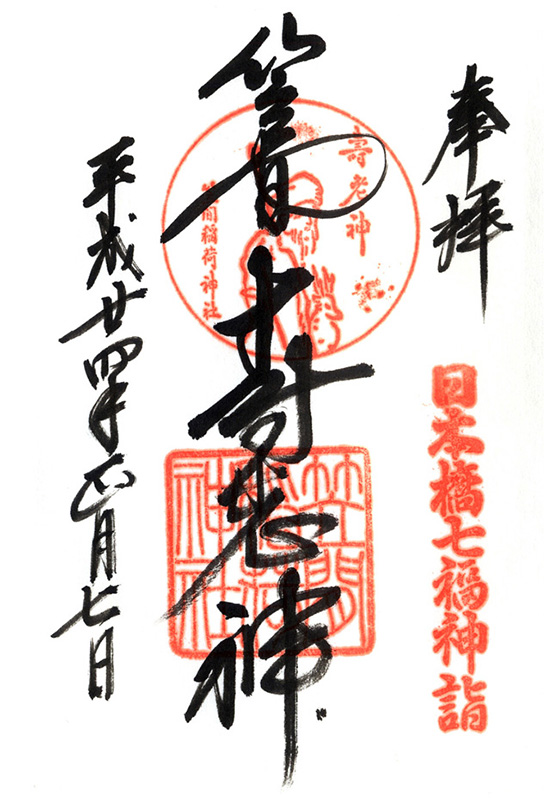 奉拝
日本橋七福神詣
壽老神
笠間稲荷神社
寿老神
笠間稲荷神社
平成廿四年正月七日